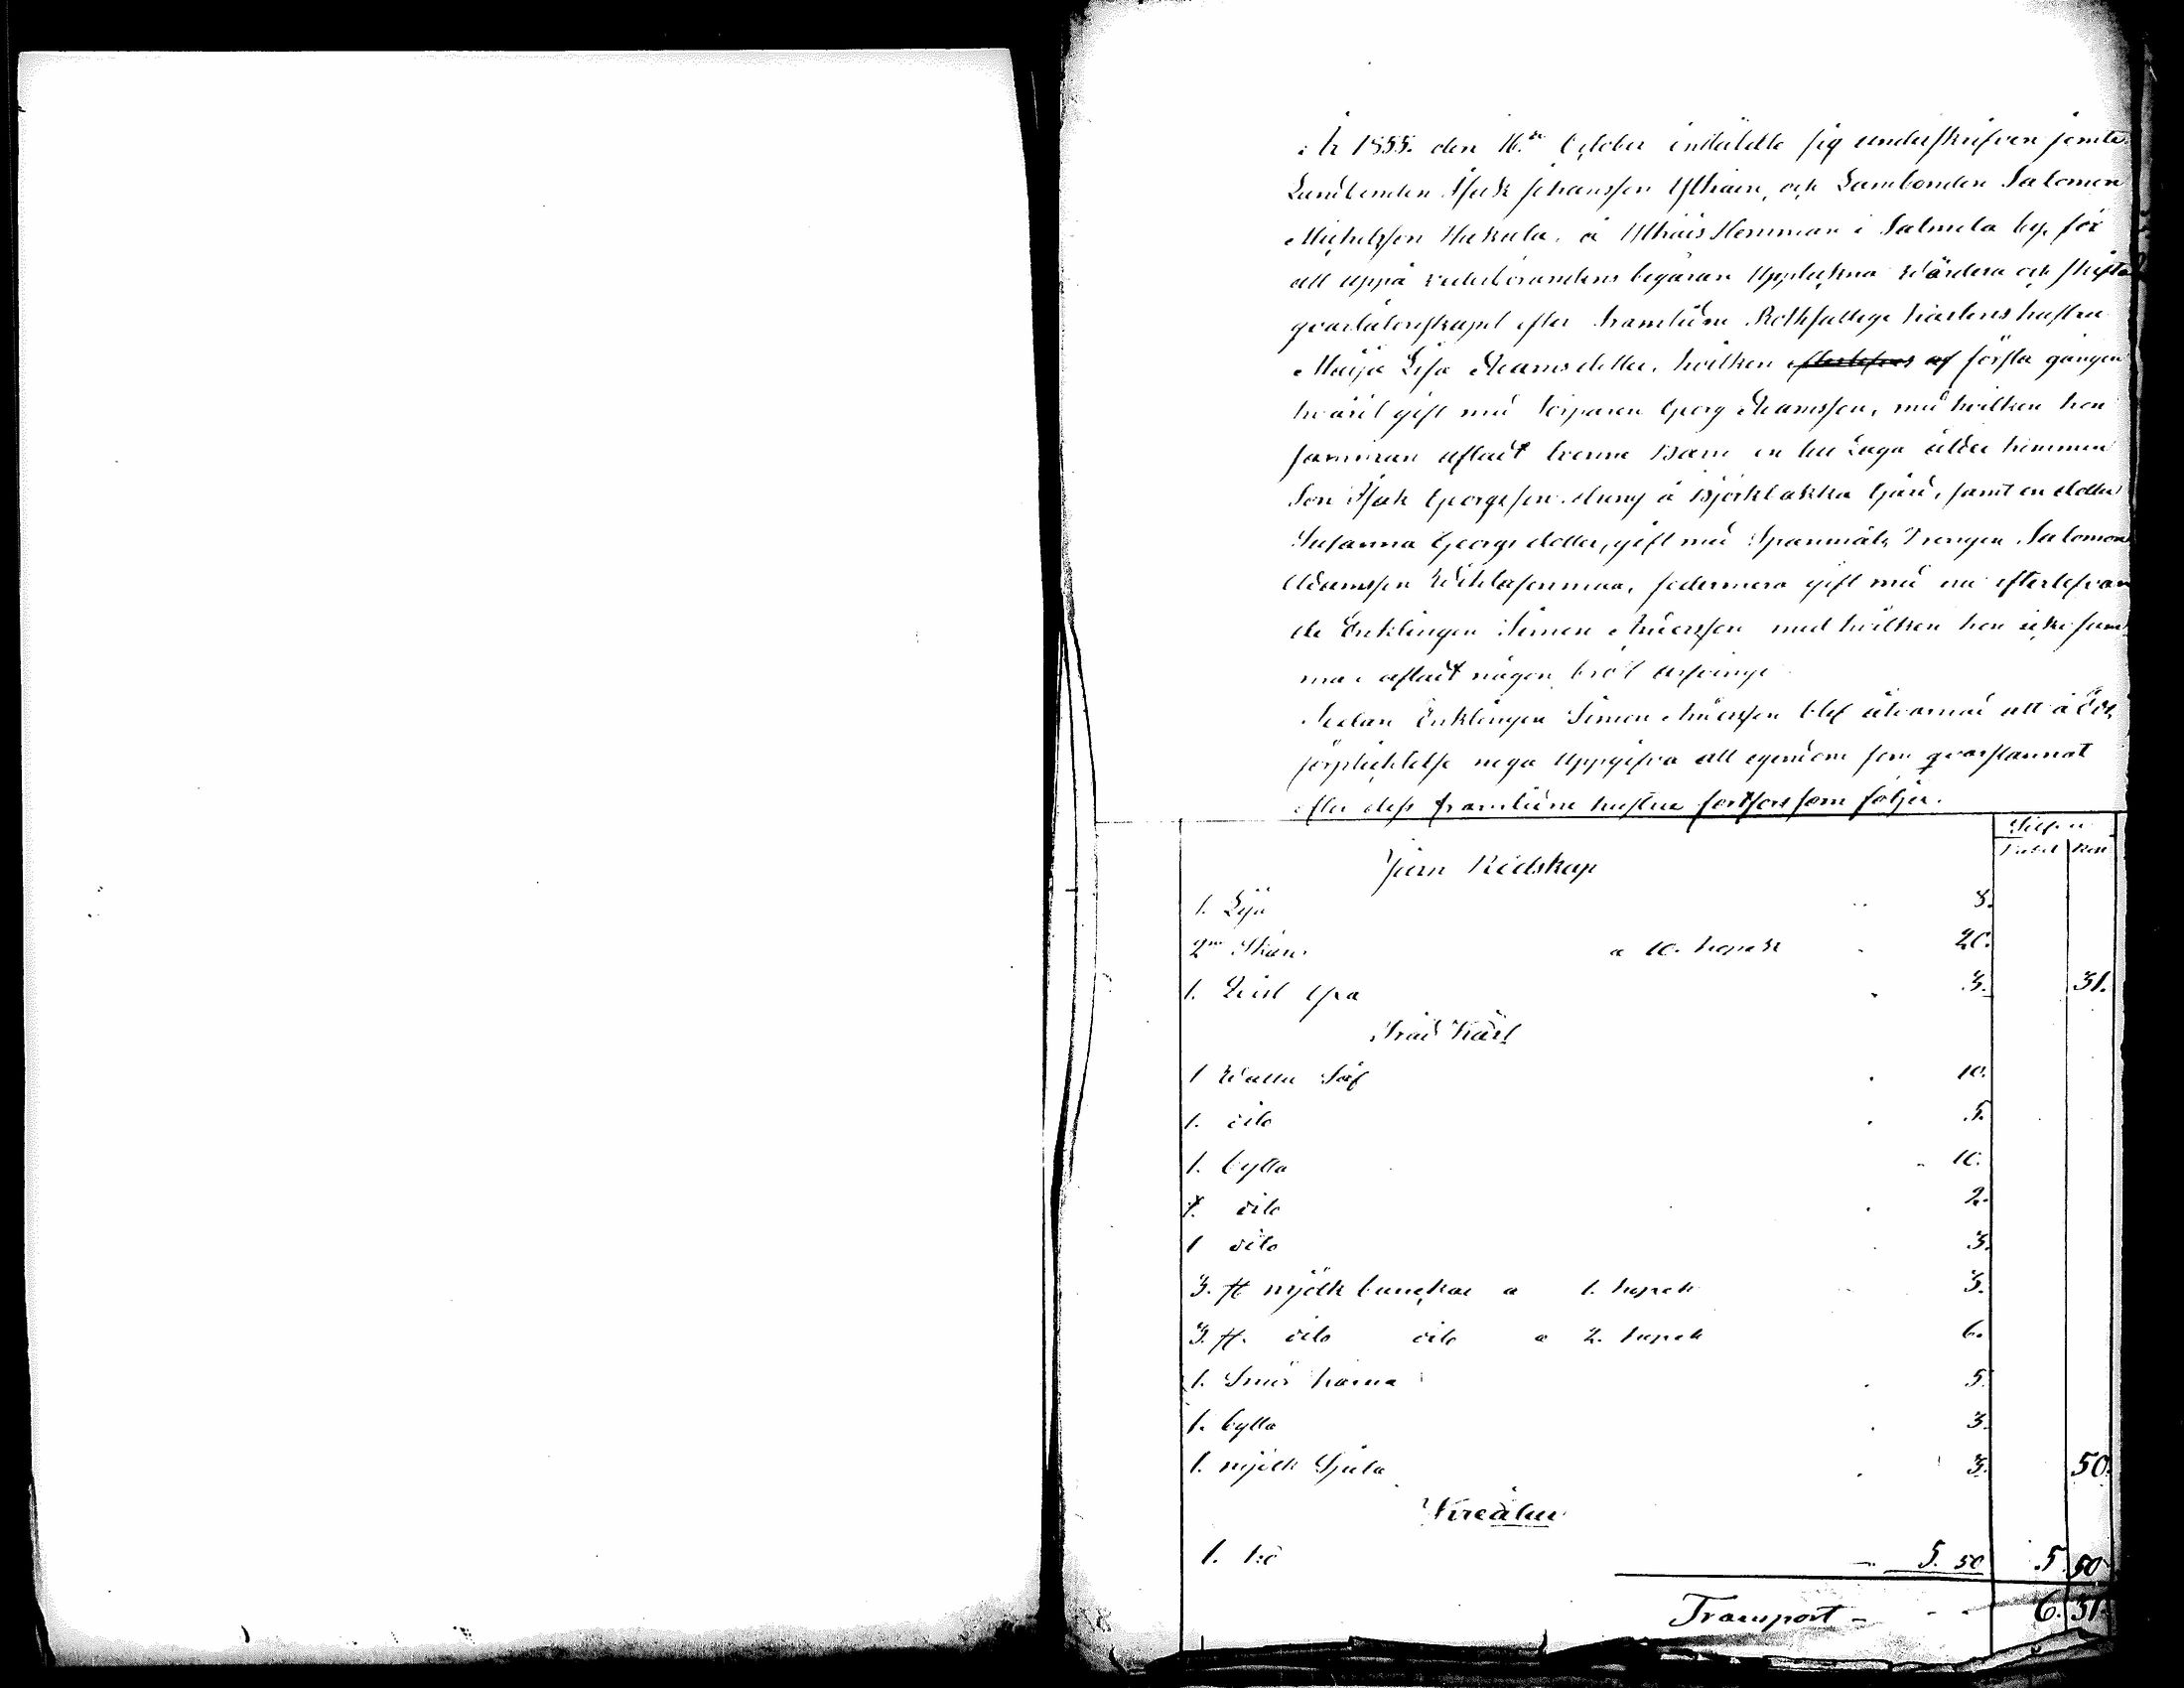 År 1855. den 16.de October inställde sig underskrifven jemte
Landbonden Isak Johansson Ylhäin, och Lambonden Salomon
Michelsson Hakula, å Ylhäis Hemman i Salmela by, för
att uppå vederbörandens begäran Uppteckna Wärdera och skifta
qvarlåtenskapet efter framlidne Rothfattige Karlens hustru
Maija Lisa Adamsdotter, hvilken efterlefves af första gången
hvarit gift med Torparen Georg Adamsson, med hvilken hon
samman afladt tvenne Barn en till Laga ålder kommen
Son Isak Georgsson dräng å Björklakka Gård, samt en dotter
Susanna Georgs dotter, gift med Spanmåls Drengen Salomon
Adamsson sedermera gift med nu efterlefvan
de Enklingen Simon Andersson med hvilken hon icke sam
man afladt någon bröst arfvinge
Sedan Enklingen Simon Andersson blef åtvarnad att å Eds
förplicktelse noga Uppgifva all egendom som qvarstannat
efter dess framlidne hustru fortfors som följer.
Silfver
Rubel Kop
Jern Redskap
1. Lija 8.
2ne Skäror a 10. kopek 20.
1. 3. 31.
Träd Kärl
1 Watten Så 10.
1. dito 5.
1. bytta 10.
1. dito 2.
1 dito 3.
3. st mjölk bunckar a 1. kopek 3.
3. st. dito dito a 2. kopek 6.
1. Smör kärna 5.
1. bytta 3.
1. mjölk Spila 3. 50.
Kreatur
1. ko 5. 50 5. 50
Transport - - - 6. 31.